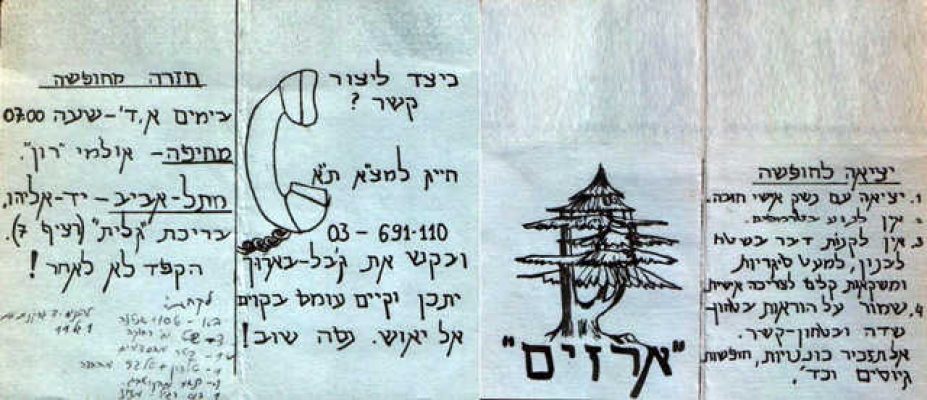 יציאה לחופשה
1. יציאה עם נשק אישי חובה.
2. אין לנוע
3. אין לקנות דבר בשטח
לבנון, למעט סיגריות
ומשקאות קלים לצריכה אישית.
4. שמור על הוראות בטחון
שדה ובטחון-קשר.
אל תזכיר כוננויות, חופשות,
גיוסים וכד'.
"ארזים"
כיצד ליצור
קשר ?
חייג למצ"א ת"א
03 - 691-110
ובקש את ג'בל-בארוך
יתכן וקיים עומס בקוים
אל יאוש. נסה שוב!
חזרה מחופשה
בימים א,ד' - שעה 07.00
מחיפה - אולמי "רון".
מתל-אביב - יד-אליהו,
בריכת "גלית" (רציף 7).
הקפד לא לאחר!
לקחת: